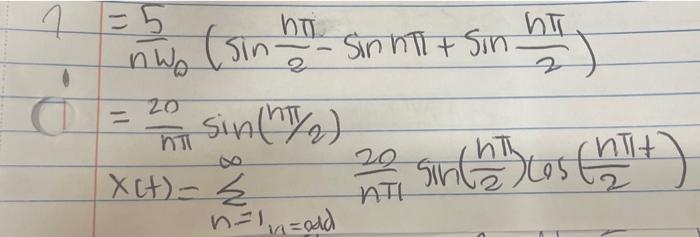 = 5/nω₀ (sin nπ/2 - sin nπ + sin nπ/2)
= 20/nπ sin(nπ/2)
x(t) = ∞ Σ n=1, n=odd 20/nπ sin(nπ/2) cos(nπt/2)